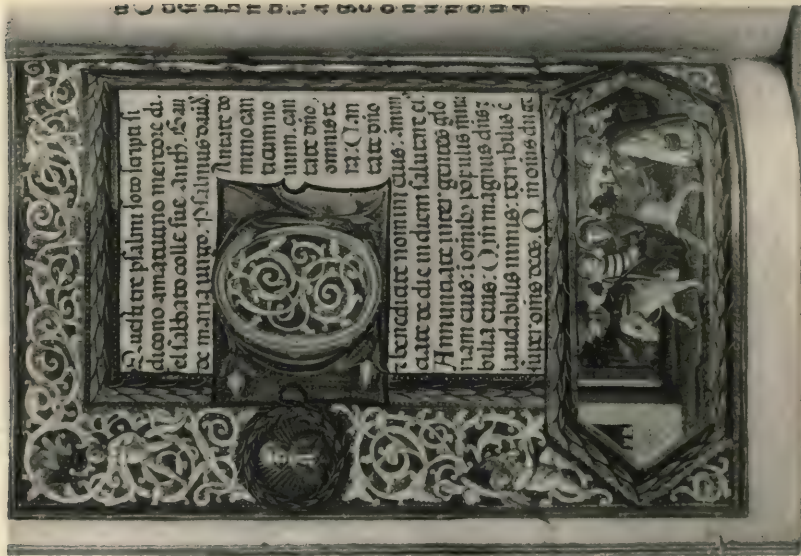 Questi tre psalmi soto scripti si
dicono amatutino mercore di.
el sabbato colle sue anth.
de maria virgo. psalmus dauid.
Cantate do
mino can
ticum no
uum. can
tate dnō.
omnis te
rra. Can
tate dnō
et benedicite nomini eius: anun
ciate de die in diem salutare ei.
Annunciate inter gentes glo
riam eius: i omnibꝰ populis mira
bilia eius. Qm̄ magnus dn̄s ⁊
laudabilis nimis: terribilis ē
super omīs deos. Qm̄ omnes dii gē